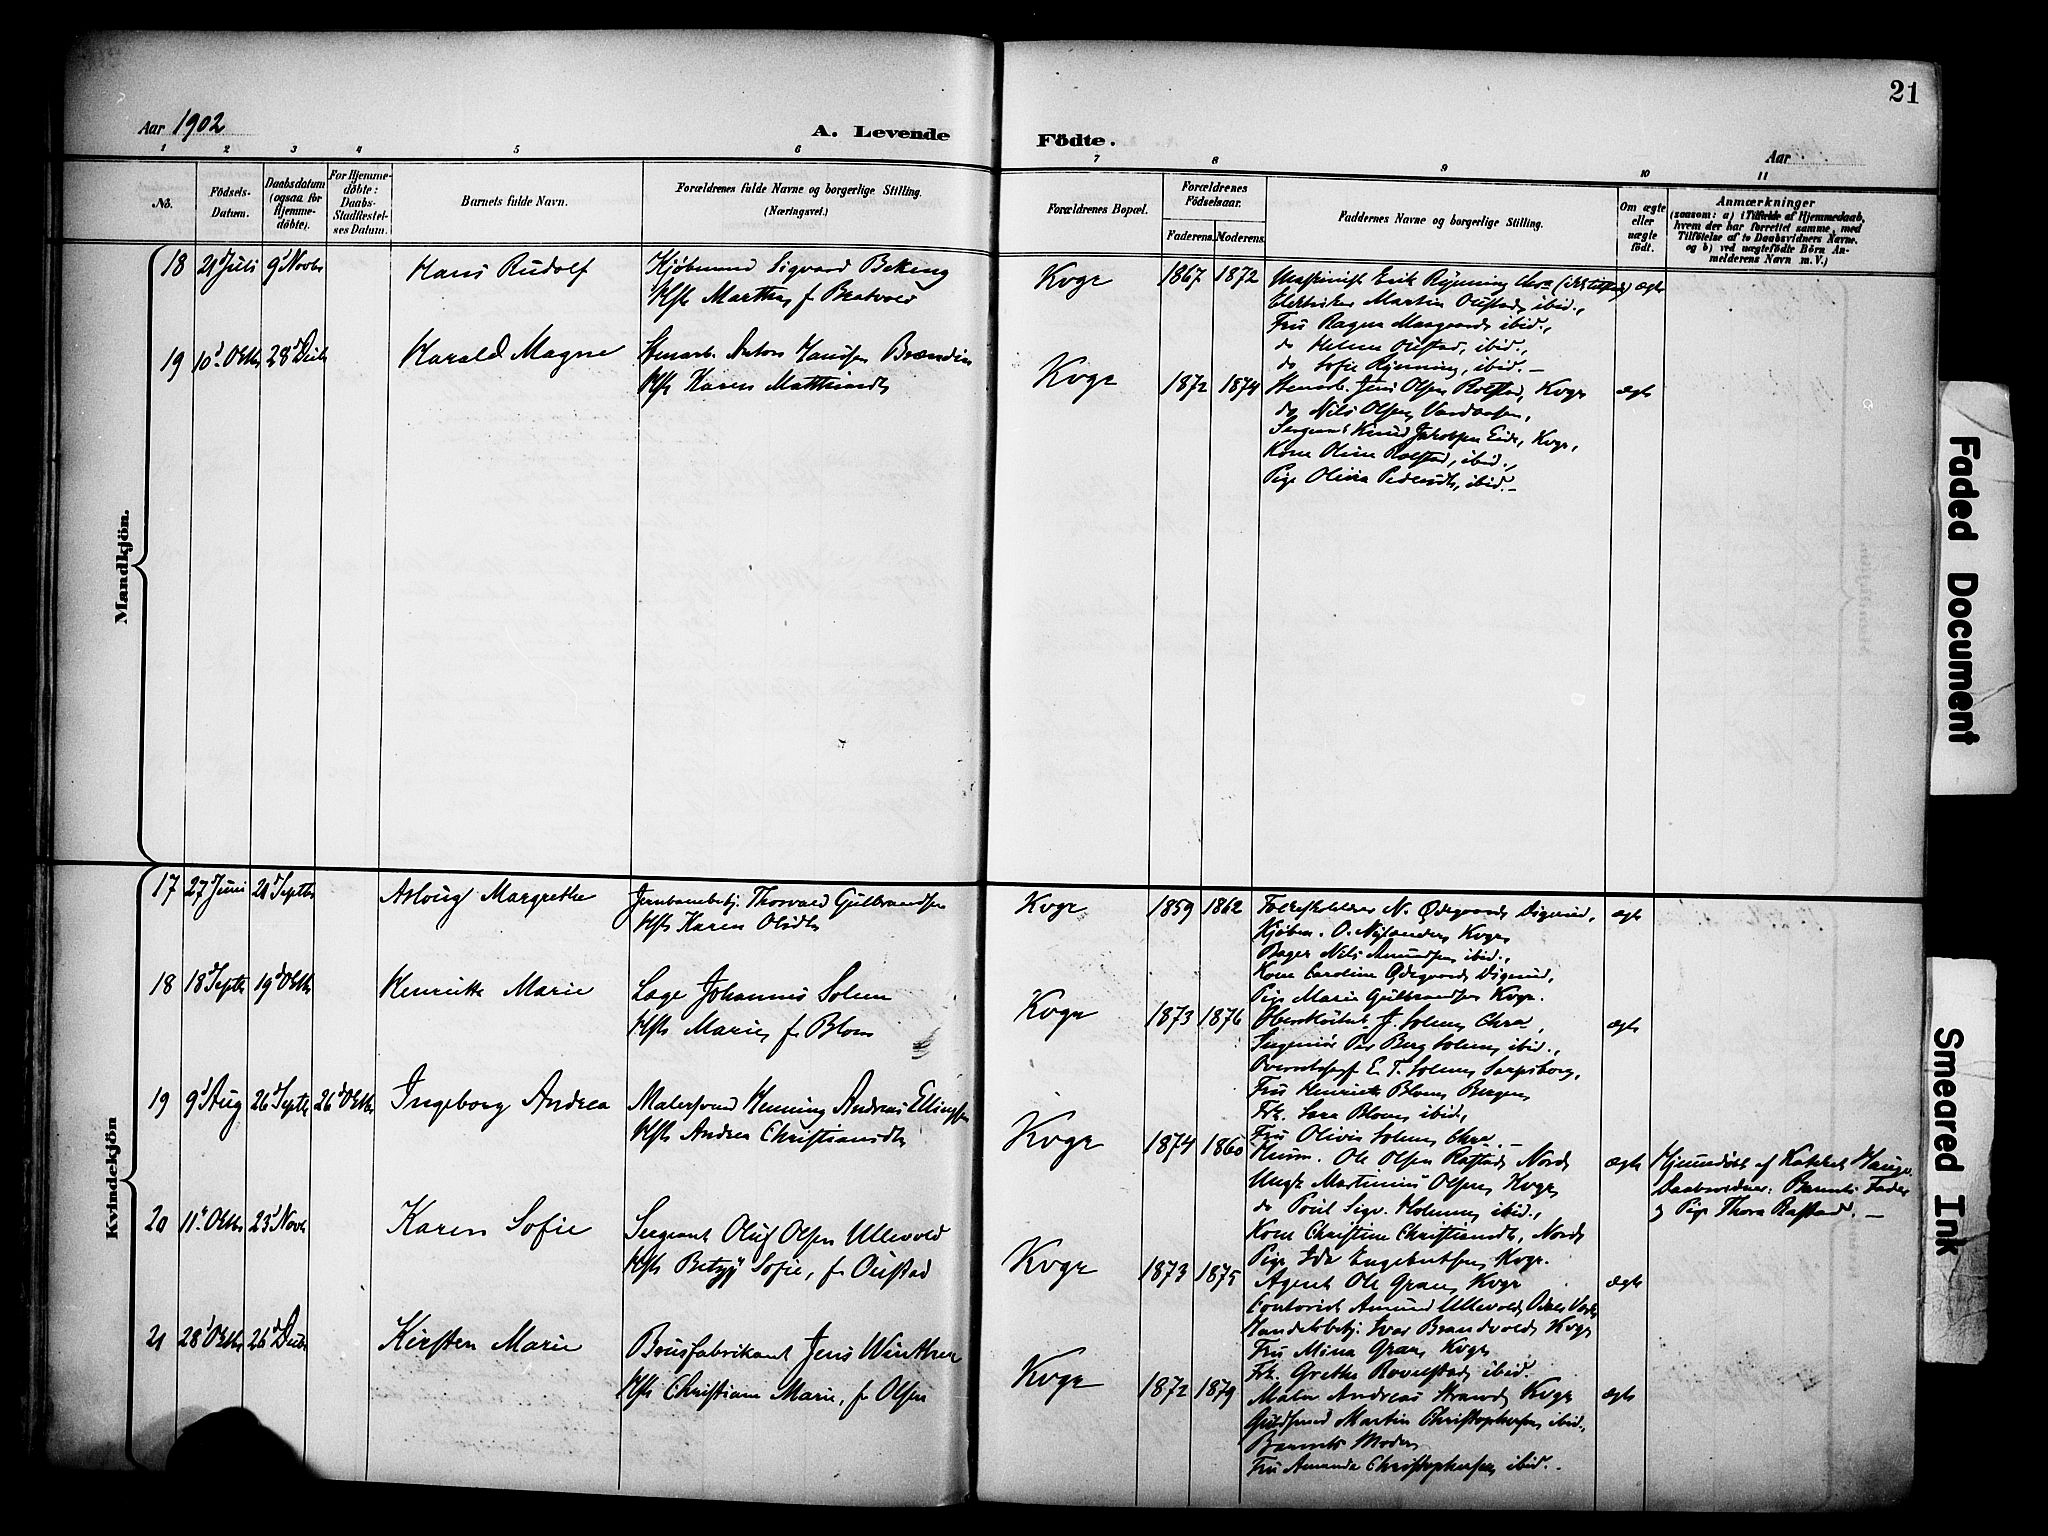 21
Aar 1902
A. Levende
Födte.
Aar
1 2 3 4 5 6 7 8 9 10 11
No.
Födsels-
Datum.
Daabsdatum
(ogsaa for
Hjemme-
döbte).
For Hjemme-
döbte:
Daabs-
Stadfæstel-
ses Datum.
Barnets fulde Navn.
Forældrenes fulde Navne og borgerlige Stilling.
(Næringsvei.)
Forældrenes Bopæl.
Forældrenes
Födselsaar.
Faderens. Moderens.
Faddernes Navne og borgerlige Stilling.
Om ægte
eller
uægte
födt.
Anmærkninger
(saasom: a) i Tilfælde af Hjemmedaab,
hvem der har forrettet samme, med
Tilföielse af to Daabsvidners Navne,
og b) ved uægtefödte Börn An-
melderens Navn m. V.)
Mandkjön.
18 21 Juli 9' Novbr Hans Rudolf Kjøbmand Sigvard Bekeng
Hst. Marthe, f. Bratvold
Kvgr 1867 1872 Maskinist Erik Rynning Chra ægte
Elektriker Martin Oustad, ibid.,
Fru Ragna Maagaard, ibid.,
do Helma Oustad, ibid.,
do Sofie Rynning, ibid. –
19 10' Oktbr 28' Decbr Harald Magne Stenarb. Anton Hansen Brænden
Hst. Karen Mathisdt.
Kvgr 1872 1874 Stenarb. Jens Olsen Rolstad, Kvgr ægte
do Nils Olsen Vardaasen,
Sergeant Knud Jakobsen Eide, Kvgr,
Kone Oline Rolstad, ibid.,
Pige Olivia Pedersdt., ibid. –
Kvindekjön
17 27' Juni 21' Septbr Aslaug Margrethe Jernbanebetj. Thorvald Gulbrandsen
Hst. Karen Olsdt.
Kvgr 1859 1862 N. Ødegaard, Digerud, ægte
Kjøbm. O. Nylander, Kvgr,
Bager Nils Amundsen, ibid.,
Kone Caroline Ødegaard, Digerud,
Pige Marie Gulbrandsen Kvgr.
18 18' Septbr 19' Oktbr Henriette Marie Læge Johannes Solem
Hst. Marie, f. Blom
Kvgr 1873 1876 J. Solem, Chra, ægte
Ingeniør Per Berg Solem, ibid.,
E. T. Solem, Sarpsborg,
Fru Henriette Blom, Bergen,
Frk. Sara Blom, ibid.,
Fru Olivie Solem, Chra. –
19 9' Aug 26' Septbr 26' Oktbr Ingeborg Andrea Malersvend Henning Andreas Ellingsen
Hst. Andrea Christiansdt.
Kvgr 1874 1860 Husm. Ole Olsen Rafstad, Nord, ægte
Ungk. Martinius Olsen, Kvgr,
do Poul Sigv. Holmen, ibid.,
Kone Christine Christiansdt., Nord,
Pige Ida Engebretsen, Kvgr.
Hjemmedøbt af Kateket Hauge.
Daabsvidner: Barnets Fader
og Pige Thora Rafstad. –
20 11' Oktbr 23' Novbr Karen Sofie Sergeant Oluf Olsen Ullevold
Hst. Betzy Sofie, f. Oustad
Kvgr 1873 1875 Agent Ole Gran, Kvgr ægte
Contorist Amund Ullevold, Odals Værk,
Handelsbetj. Ivar Brandvold, Kvgr
Fru Mina Gran, Kvgr
Frk. Grethe Rovelstad, ibid.
21 28' Oktbr 26' Decbr Kirsten Marie Brusfabrikant Jens Winther
Hst. Christiane Marie, f. Olsen
Kvgr 1872 1879 Maler Andreas Strand, Kvgr ægte
Guldsmed Martin Christophersen, ibid.,
Barnets Moder,
Fru Amanda Christophersen, ibid. –
Faded Document
Smeared Ink